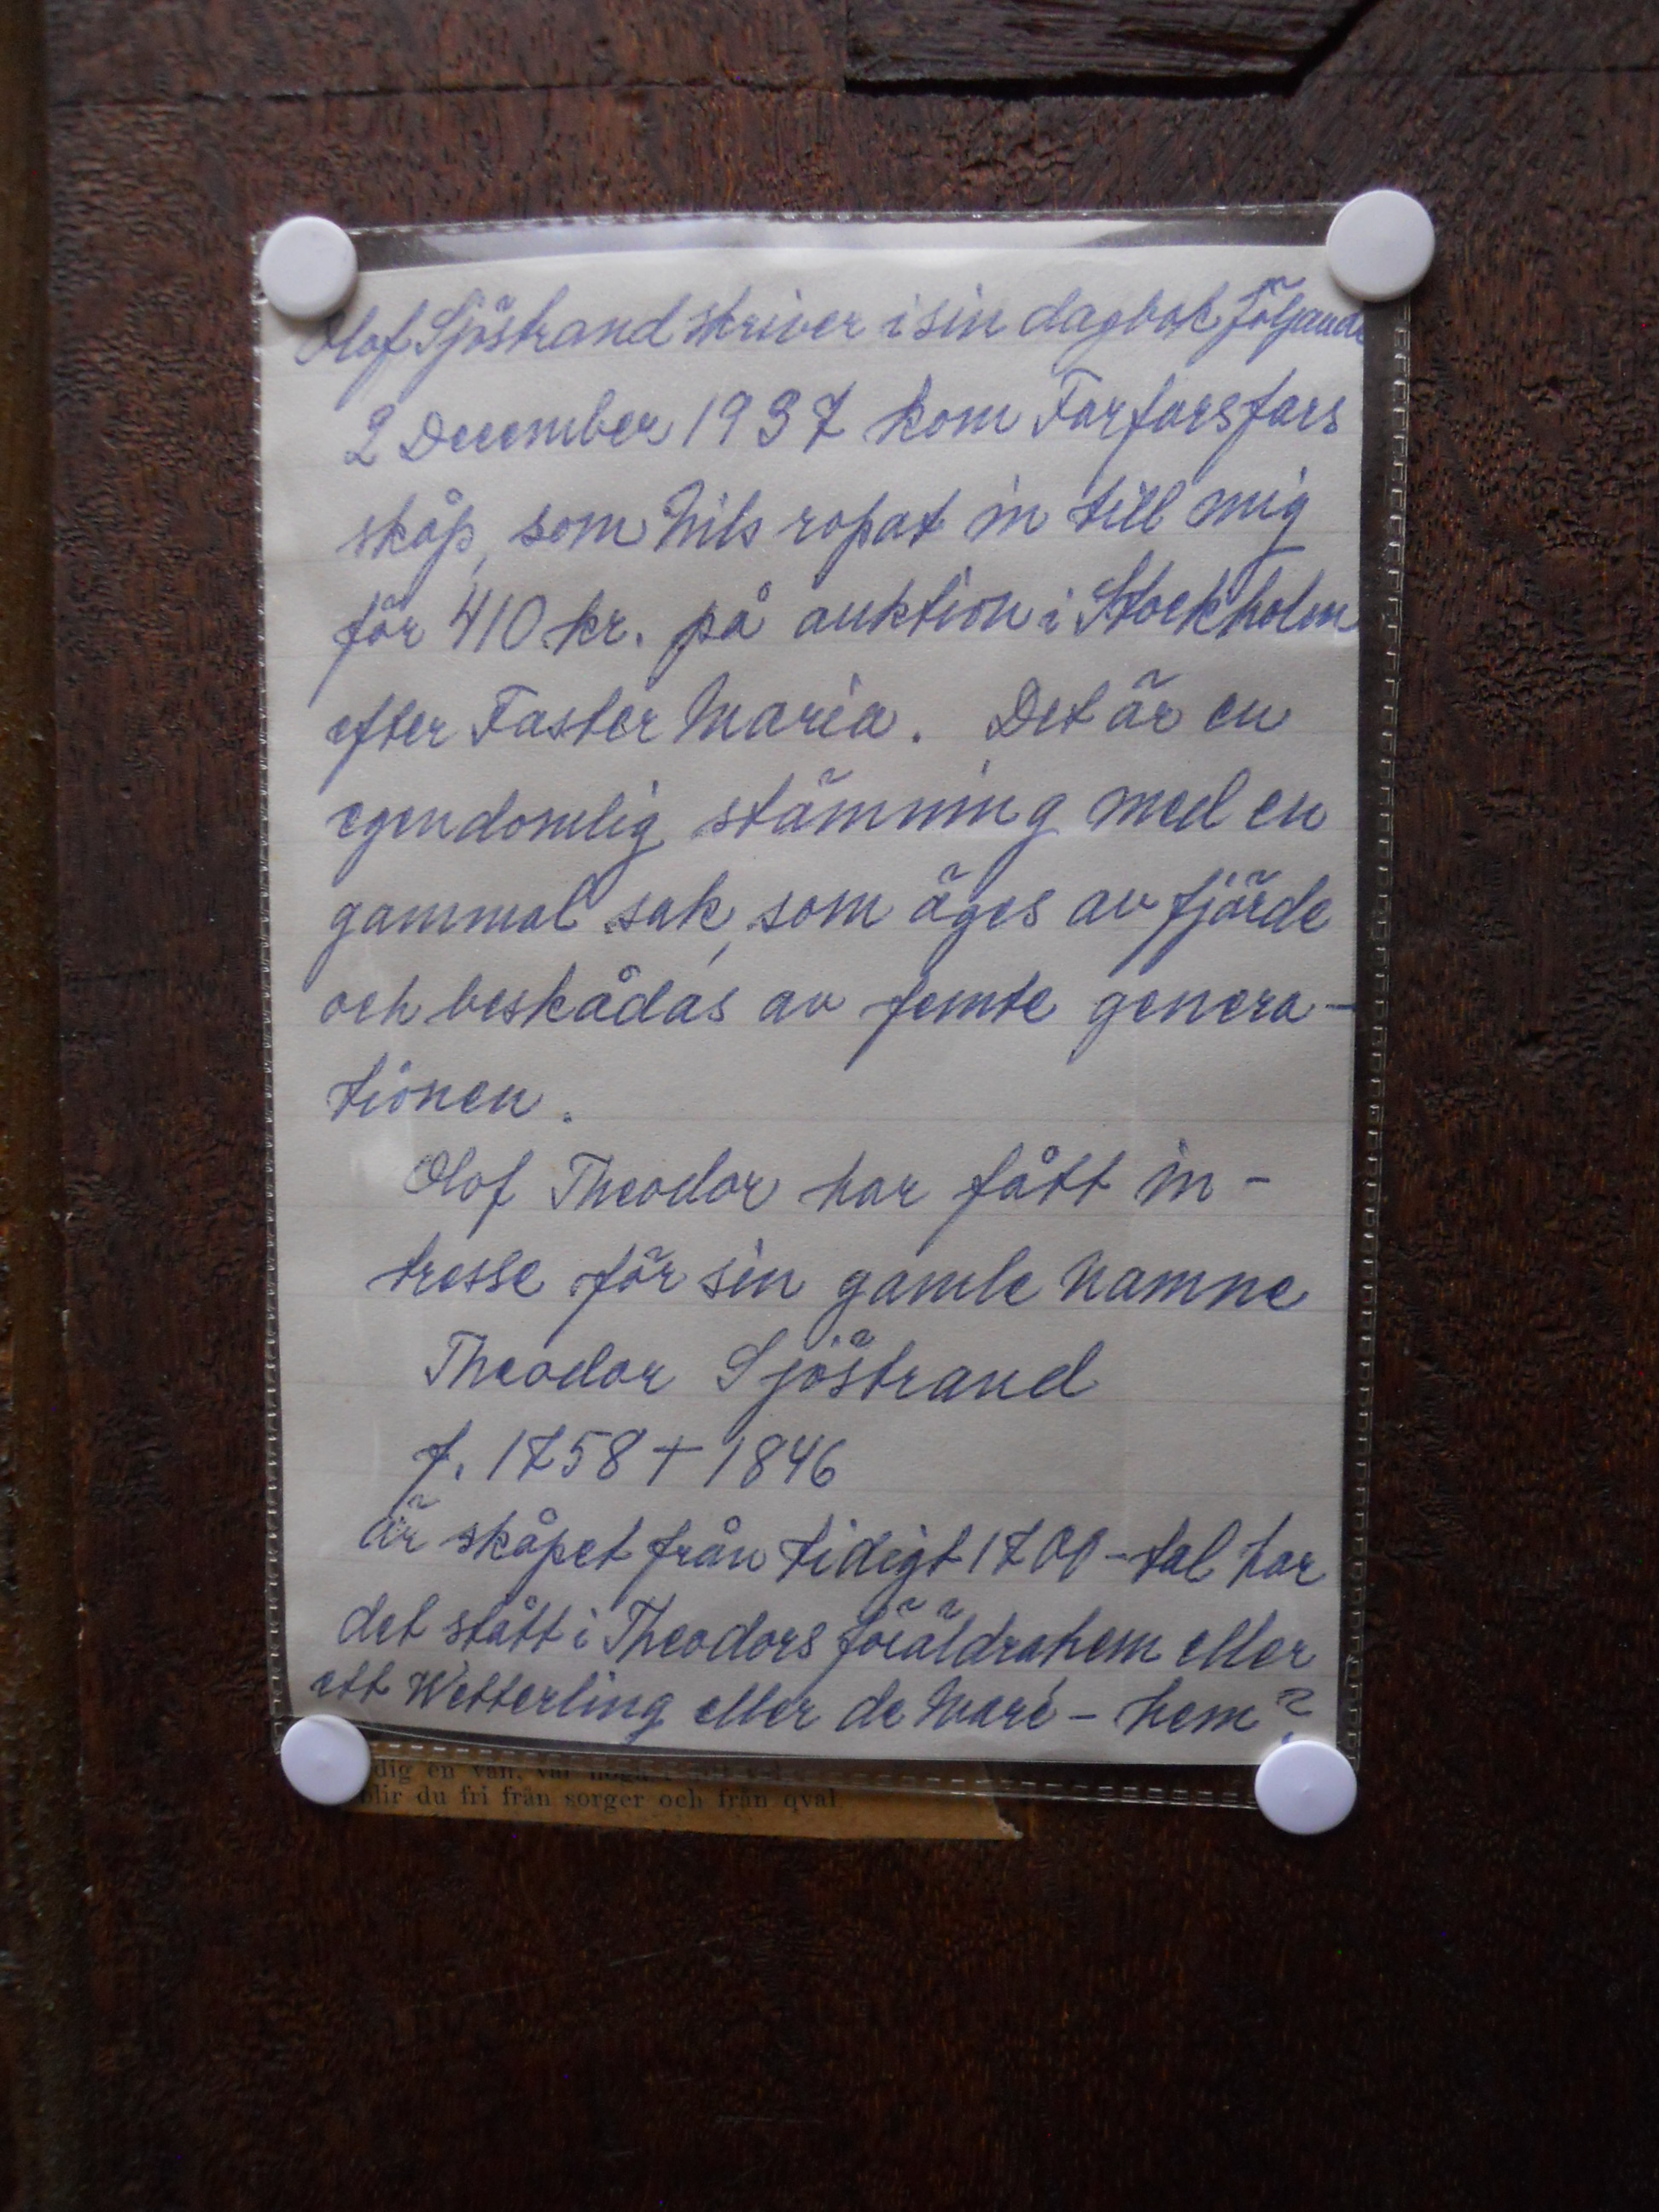 Olof Sjöstrand skriver i sin dagbok följande
2 December 1937 kom Farfarsfars
skåp, som Nils ropat in till mig
för 410 kr. på auktion i Stockholm
efter Faster Maria. Det är en
egendomlig stämning med en
gammal sak, som äges av fjärde
och beskådas av femte genera-
tionen.
Olof Theodor har fått in-
tresse för sin gamle namne
Theodor Sjöstrand
f. 1758 + 1846
är skåpet från tidigt 1700-tal har
det stått i Theodors föräldrahem eller
ett Wetterling eller de Maré - hem?
dig en vän,
blir du fri från sorger och från qval